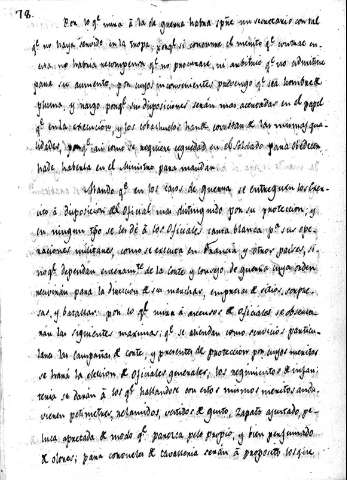 78.
Por lo q.e mira á la de guerra habra spre un secretario con tal
q.e no haya servido en la tropa, porq.e si conociere el mérito q.e contrae en
esta no habria recompensa q.e no procurase, ni arbitrio q.e no admitiese
para su aumento, por cuyos inconvenientes prevengo q.e sea hombre de
pluma, y largo porq.e sus disposiciones serán mas acertadas en el papel
q.e en la execucion, y los covachuelos han de constar de las mismas qua-
lidades, porq.e asi como se requiere ceguedad en el soldado para obedecer
hade haberla en el Ministro para mandar.
Mando q.e en los casos de guerra se entreguen los Exer-
citos á disposicion del oficial mas distinguido por su proteccion; y
en ningun tpo se les dé á los oficiales carta blanca p.a sus ope-
raciones militares, como se executa en Francia y otros paises, si-
no q.e dependan enteram.te de la corte y consejo de guerra cuya orden
esperarán para la direccion de sus marchas, empresas de sitios, sorpre-
sas, y batallas. por lo q.e mira á ascensos de oficiales se observa-
rán las siguientes maximas: q.e se atiendan como servicios particu-
lares las campañas de corte, y parientes de proteccion por cuyos meritos
se hará la eleccion de oficiales generales; los regimientos de infan-
teria se darán á los q.e hallandose con estos mismos meritos andu-
viesen petimetres, relamidos, vestidos de gusto, zapato ajustado, pe-
luca apretada de modo q.e parezca pelo propio, y bien perfumado
de olores; para coroneles de cavalleria serán á proposito los que